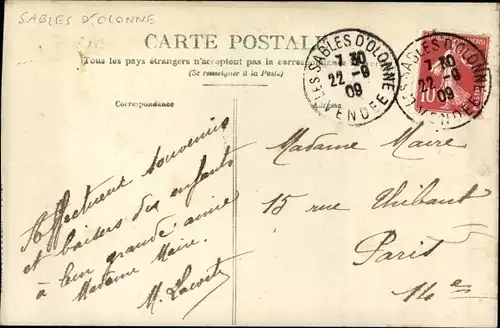 SABLES D'OLONNE
CARTE POSTALE
Tous les pays étrangers n'acceptent pas la correspondance
(Se renseigner à la Poste)
Correspondance
Adresse
LES SABLES D'OLONNE
7 30
22 - 9
09
VENDEE
LES SABLES D'OLONNE
7 30
22 - 9
09
VENDEE
10
Affectueux souvenirs
et baisers des enfants
à leur grande amie
Madame Maire.
M. Lacoste
Madame Maire
15 rue Thibaut
Paris
14e